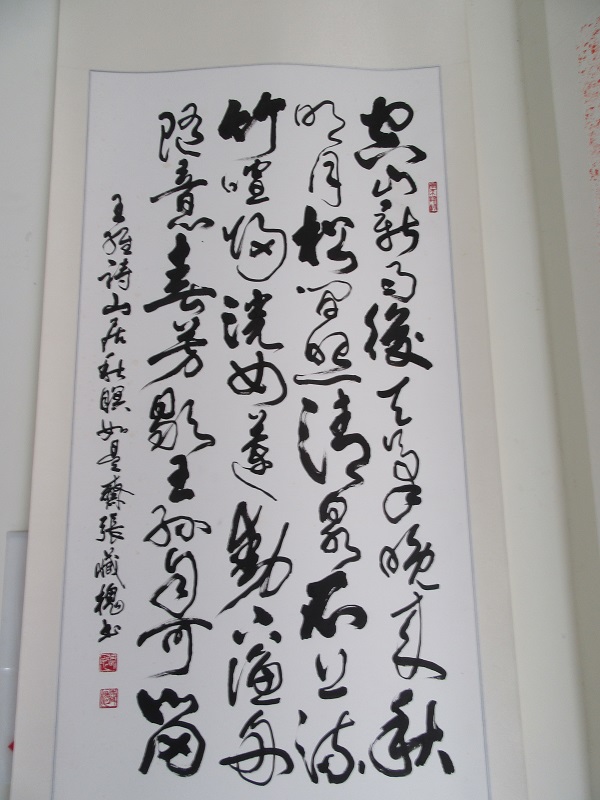 空山新雨後天氣晚來秋
明月松間照清泉石上流
竹喧歸浣女蓮動下漁舟
随意春芳歇王孫自可留
王維詩山居秋暝如是齋張槐书